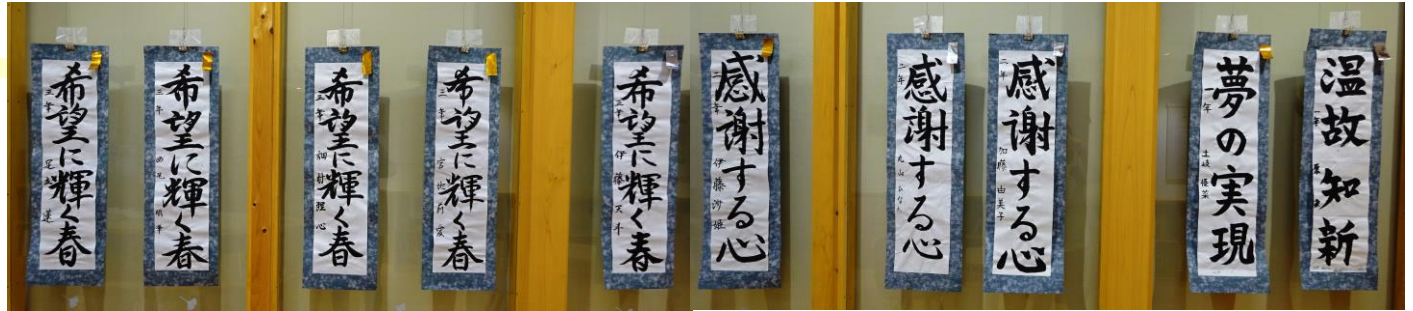 希望に輝く春
三年
希望に輝く春
三年
希望に輝く春
三年
希望に輝く春
三年
希望に輝く春
三年 伊藤
感謝する心
二年 伊藤沙姫
感謝する心
二年 丸山ひなた
感謝する心
二年 加藤由美子
夢の実現
一年 土岐優菜
温故知新